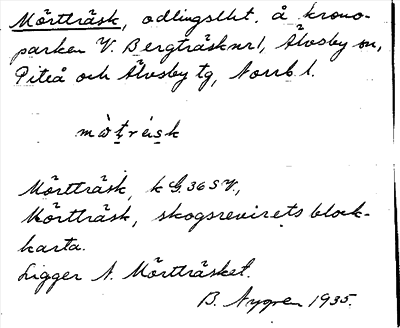 Mörtträsk, odlingslht. å krono-
parken V. Bergträsk nr 1, Älvsby sn,
Piteå och Älvsby tg, Norrb. l.
mö̀t̬rä́s̬k
Mörtträsk, k G. 36 S V.,
Mörtträsk, skogsrevirets block-
karta.
Ligger N. Mörtträsket.
B. Nygren 1935.